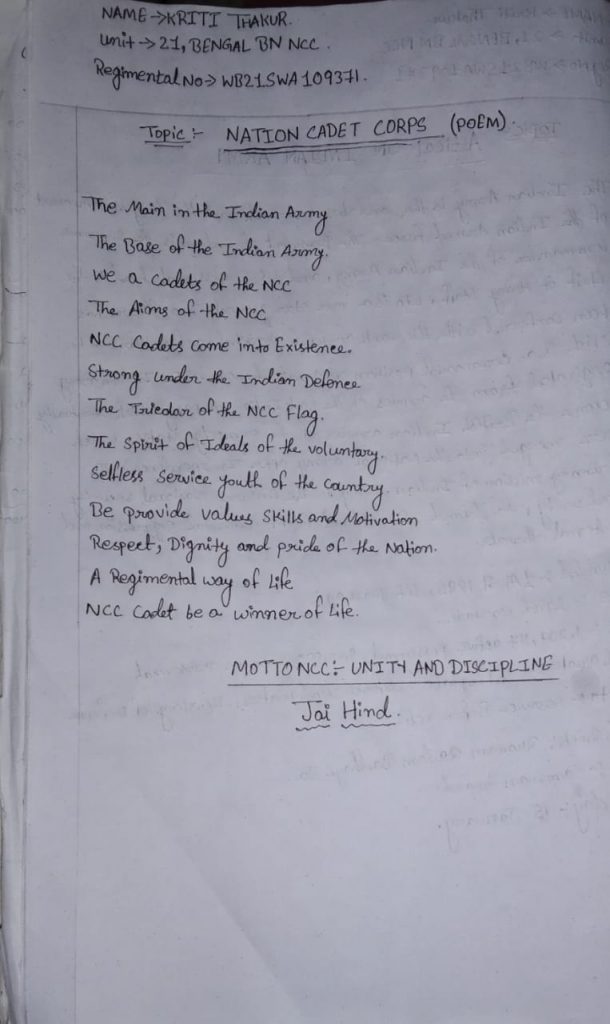 NAME → KRITI THAKUR.
Unit → 21, BENGAL BN NCC.
Regimental No → WB21SWA109371.
Topic :- NATION CADET CORPS (POEM).
The Main in the Indian Army
The Base of the Indian Army.
We a Cadets of the NCC
The Aims of the NCC
NCC Cadets come into Existence.
Strong under the Indian Defence
The Triedar of the NCC Flag.
The Spirit of Ideals of the voluntary.
Selfless Service youth of the Country
Be provide values Skills and Motivation
Respect, Dignity and pride of the Nation.
A Regimental way of Life
NCC Cadet be a winner of Life.
MOTTO NCC :- UNITY AND DISCIPLINE
Jai Hind.